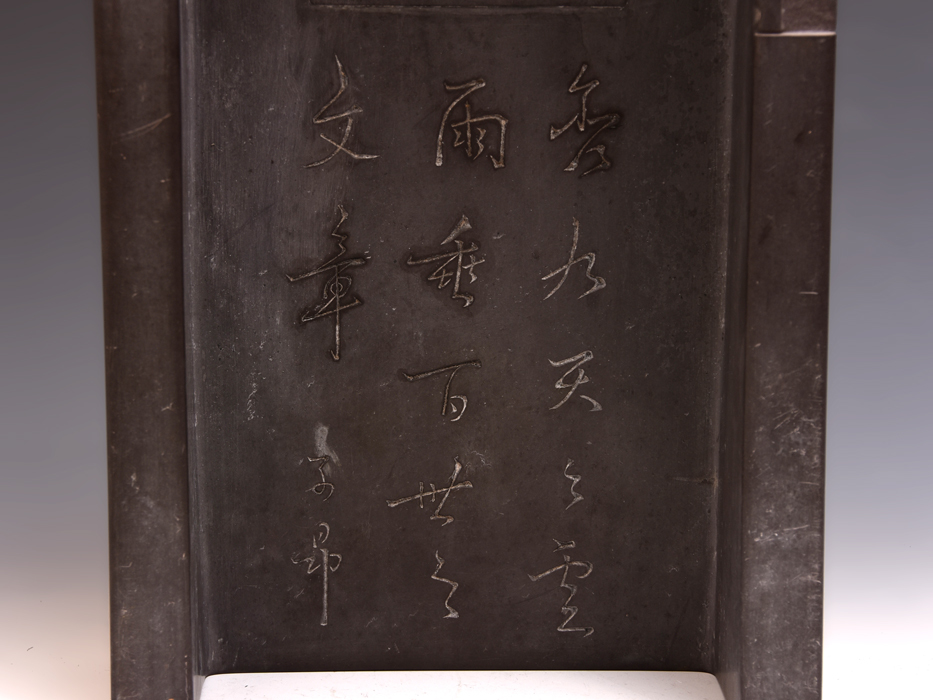 九天之雲
雨垂百世之
文章
子昂